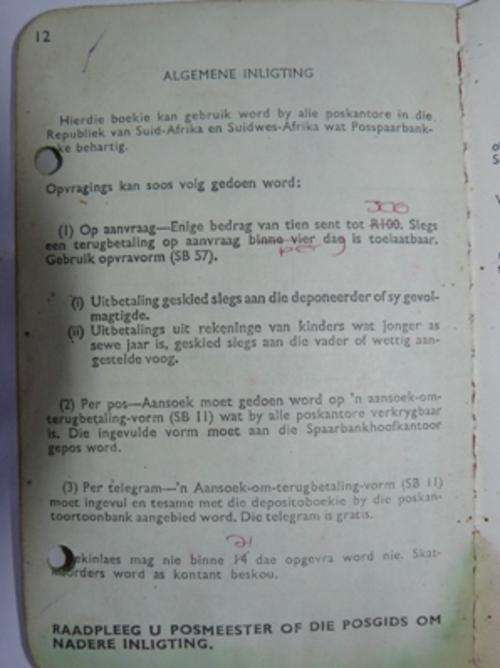 12
ALGEMENE INLIGTING
Hierdie boekie kan gebruik word by alle poskantore in die
Republiek van Suid-Afrika en Suidwes-Afrika wat Posspaarbank-
ke behartig.
Opvragings kan soos volg gedoen word:
300
(1) Op aanvraag—Enige bedrag van tien sent tot R100. Slegs
een terugbetaling op aanvraag binne vier dag is toelaatbaar.
per
Gebruik opvravorm (SB 57).
(i) Uitbetaling geskied slegs aan die deponeerder of sy gevol-
magtigde.
(ii) Uitbetalings uit rekeninge van kinders wat jonger as
sewe jaar is, geskied slegs aan die vader of wettig aan-
gestelde voog.
(2) Per pos—Aansoek moet gedoen word op 'n aansoek-om-
terugbetaling-vorm (SB 11) wat by alle poskantore verkrygbaar
is. Die ingevulde vorm moet aan die Spaarbankhoofkantoor
gepos word.
(3) Per telegram—'n Aansoek-om-terugbetaling-vorm (SB 11)
moet ingevul en tesame met die depositoboekie by die poskan-
toortoonbank aangebied word. Die telegram is gratis.
21
ekinlaes mag nie binne 14 dae opgevra word nie. Skat-
korders word as kontant beskou.
RAADPLEEG U POSMEESTER OF DIE POSGIDS OM
NADERE INLIGTING.